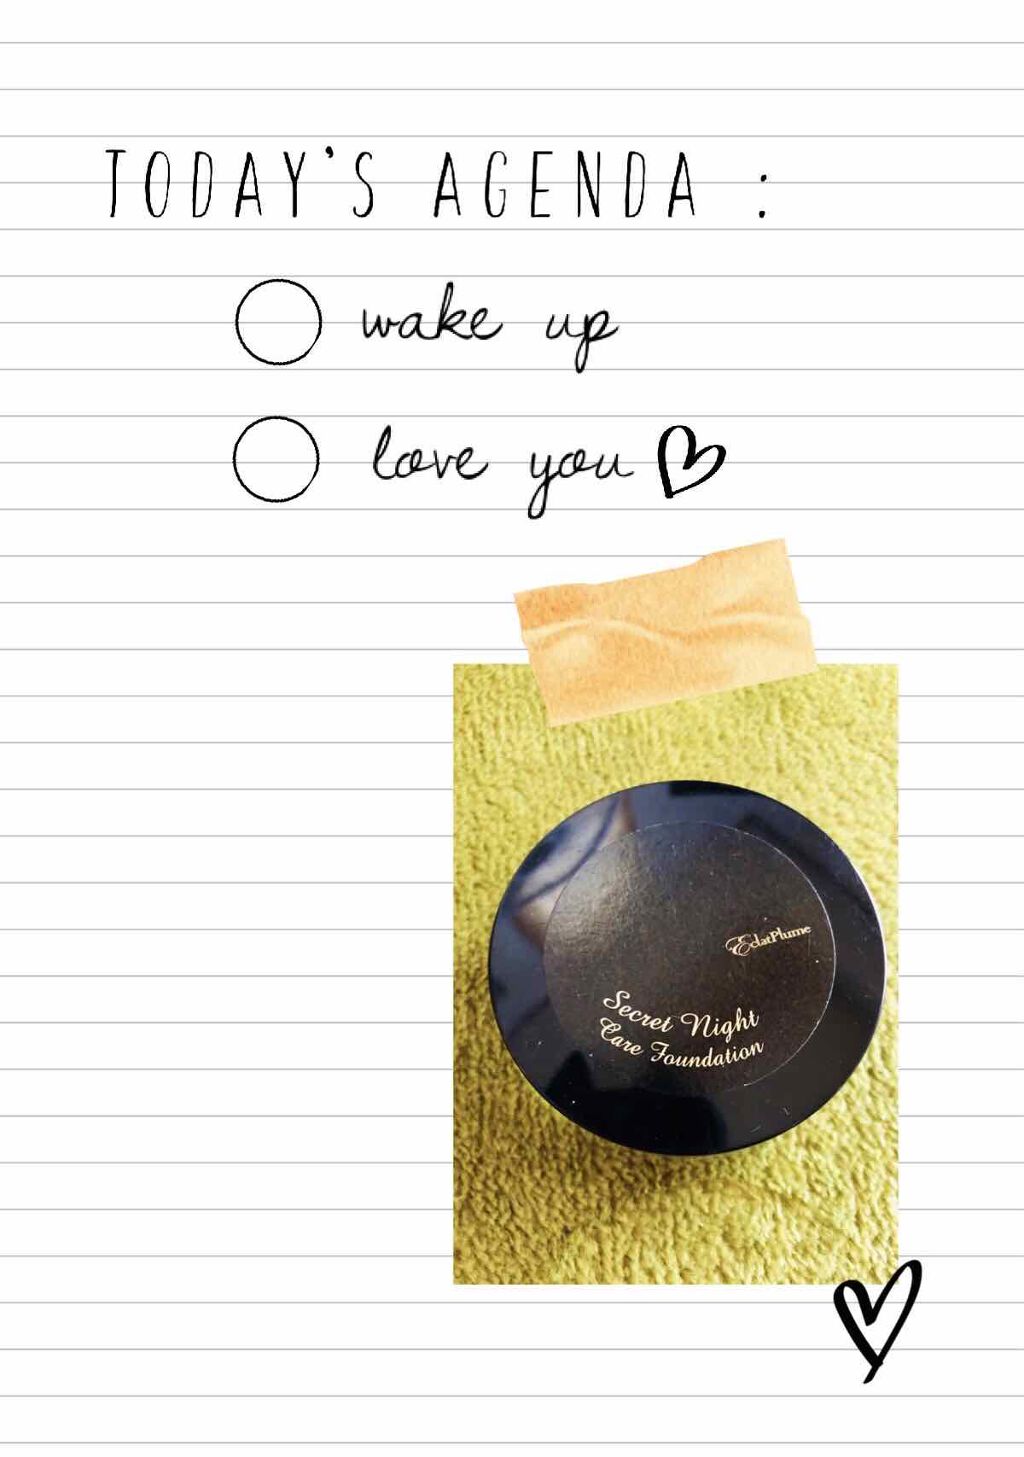 TODAY'S AGENDA :
wake up
love you
EclatPlume
Secret Night
Care Foundation